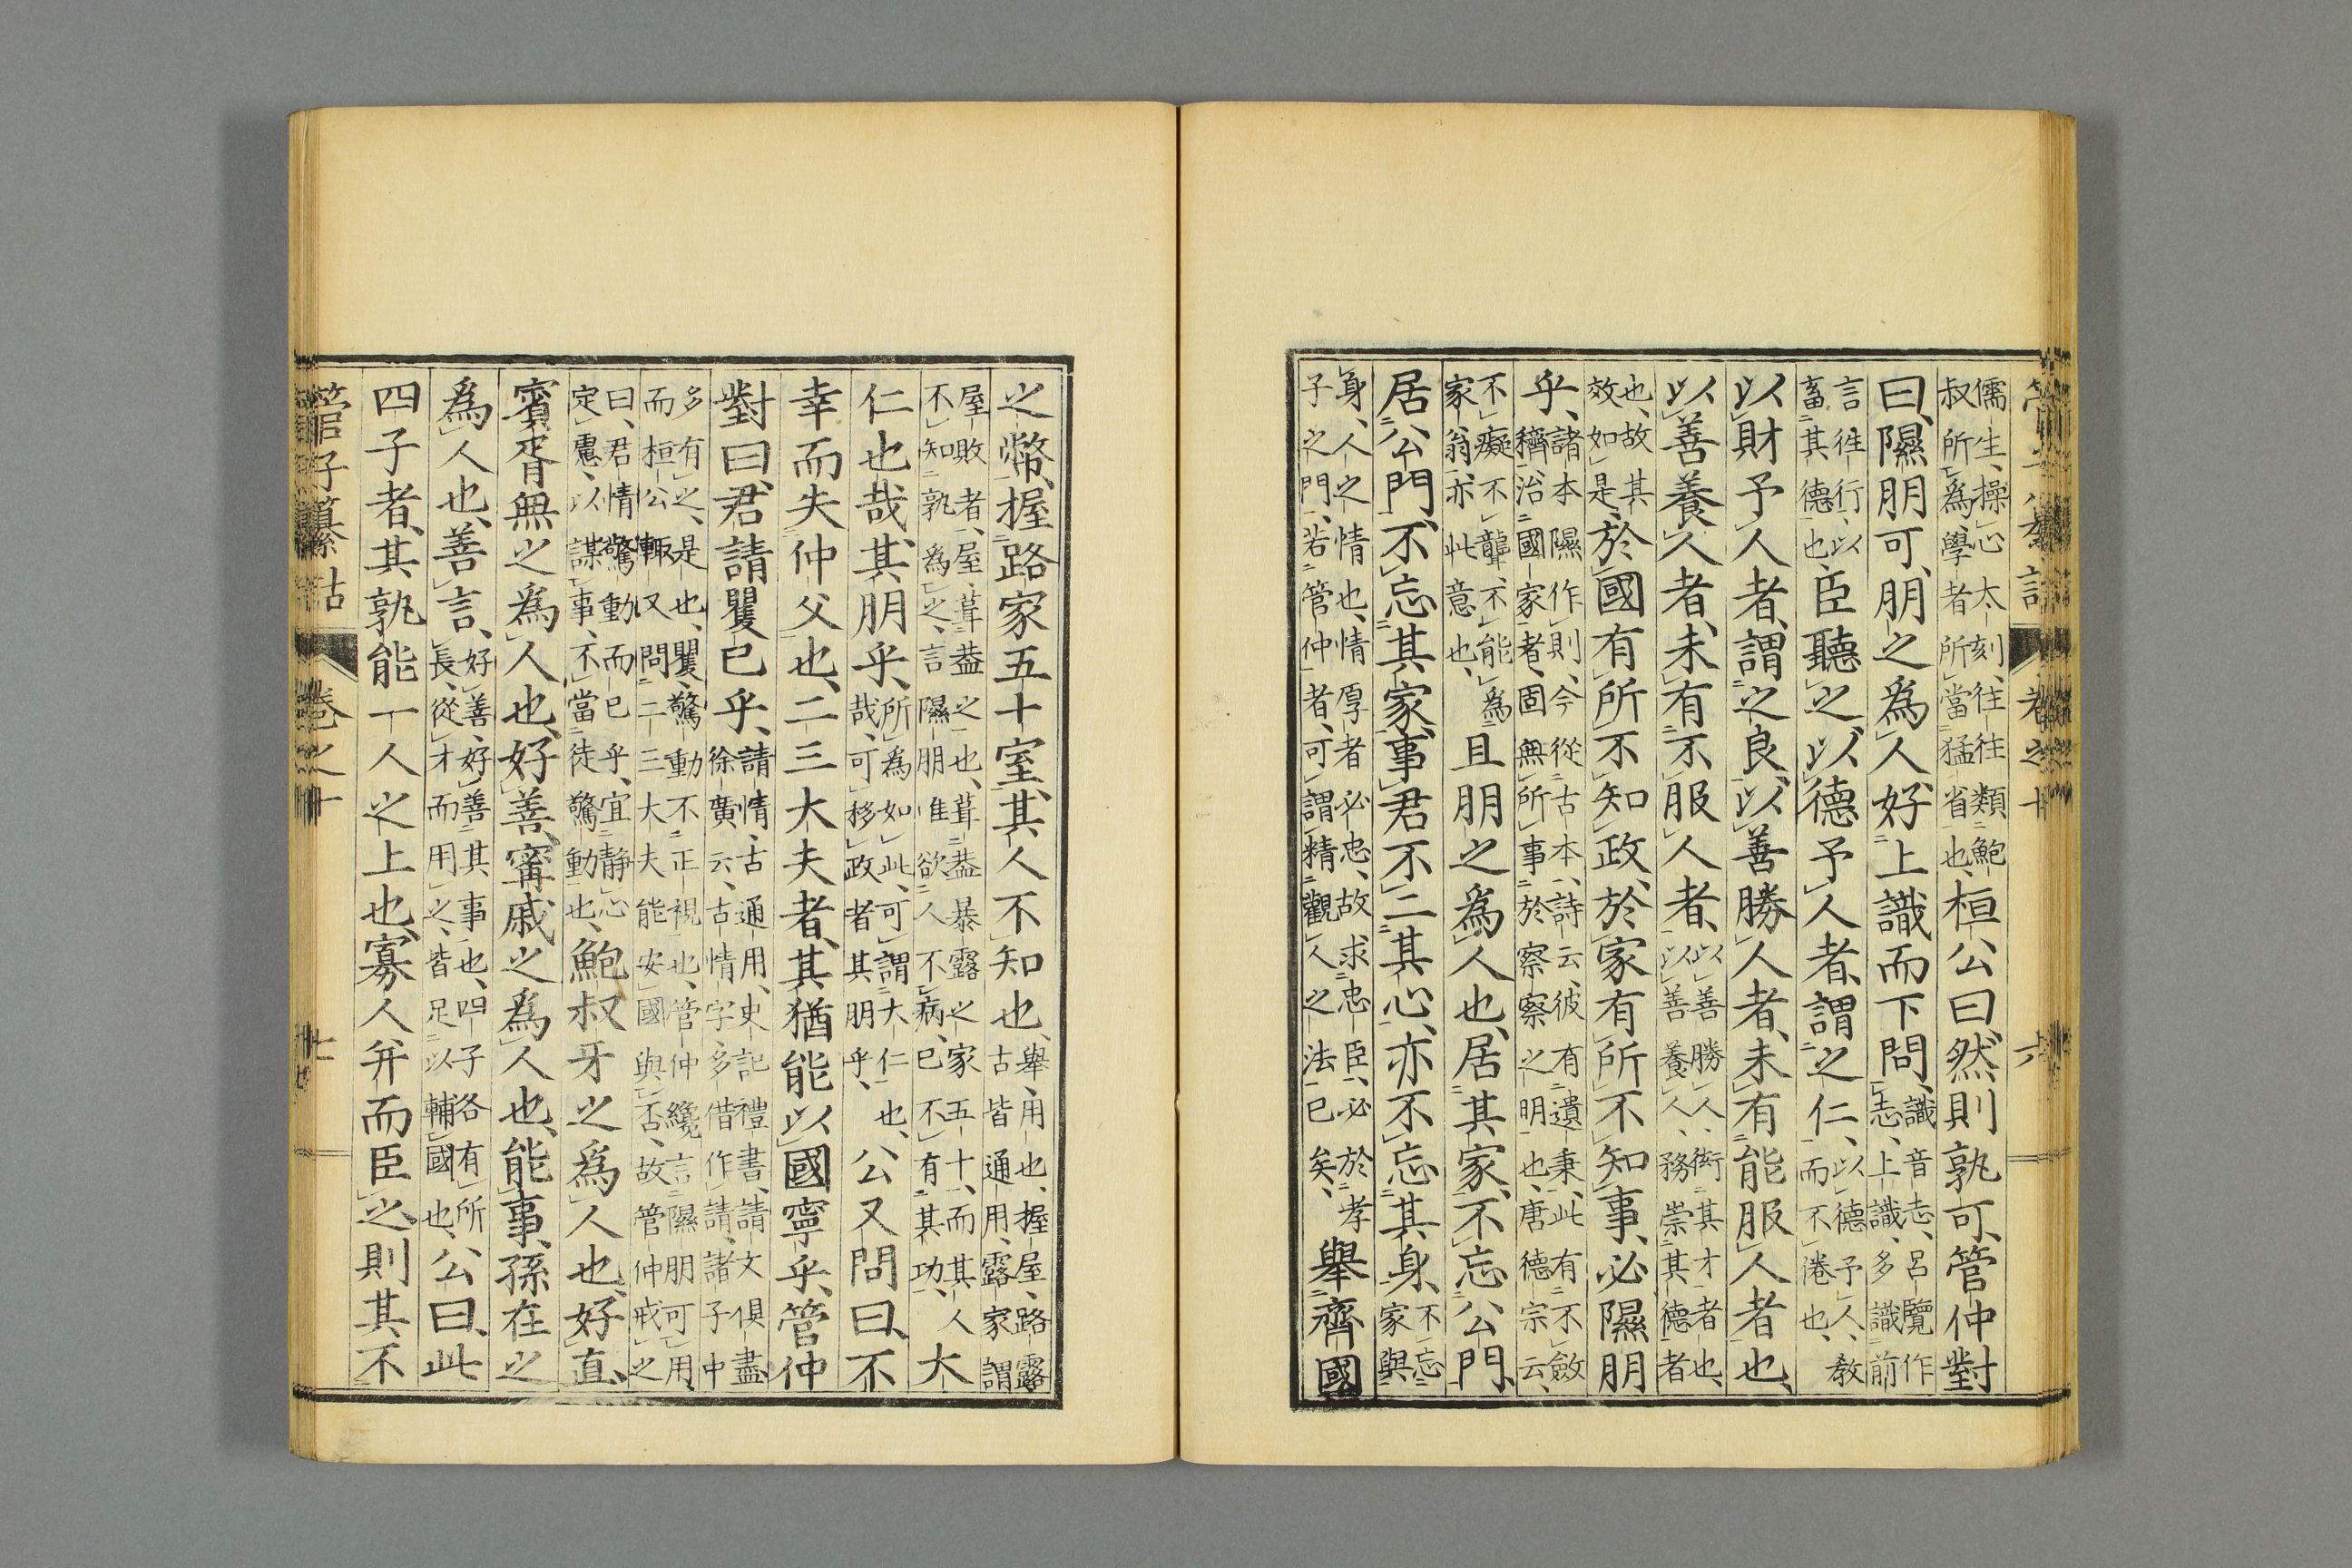 管子纂詁 卷之十 六
儒生、操心太刻、往往類鮑
叔所爲、學者所當猛省也、桓公曰、然則孰可、管仲對
曰、隰朋可、朋之爲人、好上識而下問、識音志、呂覽作志、上識、多識前
言往行、以畜其德也、臣聽之、以德予人者、謂之仁、以德予人、教而不倦也、
以財予人者、謂之良、以善勝人者、未有能服人者也、
以善養人者、未有不服人者、以善勝人、衒其才者也、以善養人、務崇其德者
也、故其效如是、於國有所不知政、於家有所不知事、必隰朋
乎、諸本隰作則、今從古本、詩云、彼有遺秉、此有不斂穧、治國家者、固無所事於察察之明也、唐德宗云、
不癡不聾、不能爲家翁、亦此意也、且朋之爲人也、居其家、不忘公門、
居公門、不忘其家、事君不二其心、亦不忘其身、不忘家與
身、人之情也、情厚者必忠、故求忠臣、必於孝
子之門、若管仲者、可謂精觀人之法已矣、擧齊國
之幣、握路家五十室、其人不知也、擧、用也、握屋、路露、古皆通用、露家謂
屋敗者、屋葺葢之也、葺葢暴露之家五十、而其人
不知孰爲之、言隰朋惟欲人不病、已不有其功、大
仁也哉、其朋乎、所爲如此、可謂大仁也哉、可移政者其朋乎、公又問曰、不
幸而失仲父也、二三大夫者、其猶能以國寧乎、管仲
對曰、君請矍已乎、請情、古通用、史記禮書、請文俱盡、徐廣云、古情字、多借作請、諸子中
多有之、是也、矍、驚動不正視也、管仲纔言隰朋可用、
而桓公輙又問二三大夫能安國與否、故管仲戒之
曰、君情驚動而已乎、宜靜心定慮、以謀事、不當徒驚動也、鮑叔牙之爲人也、好直、
賓胥無之爲人也、好善、甯戚之爲人也、能事、孫在之
爲人也、善言、好善、好善其事也、四子各有所長、從才而用之、皆足以輔國也、公曰、此
四子者、其孰能一人之上也、寡人幷而臣之、則其不
管子纂詁 卷之十 七